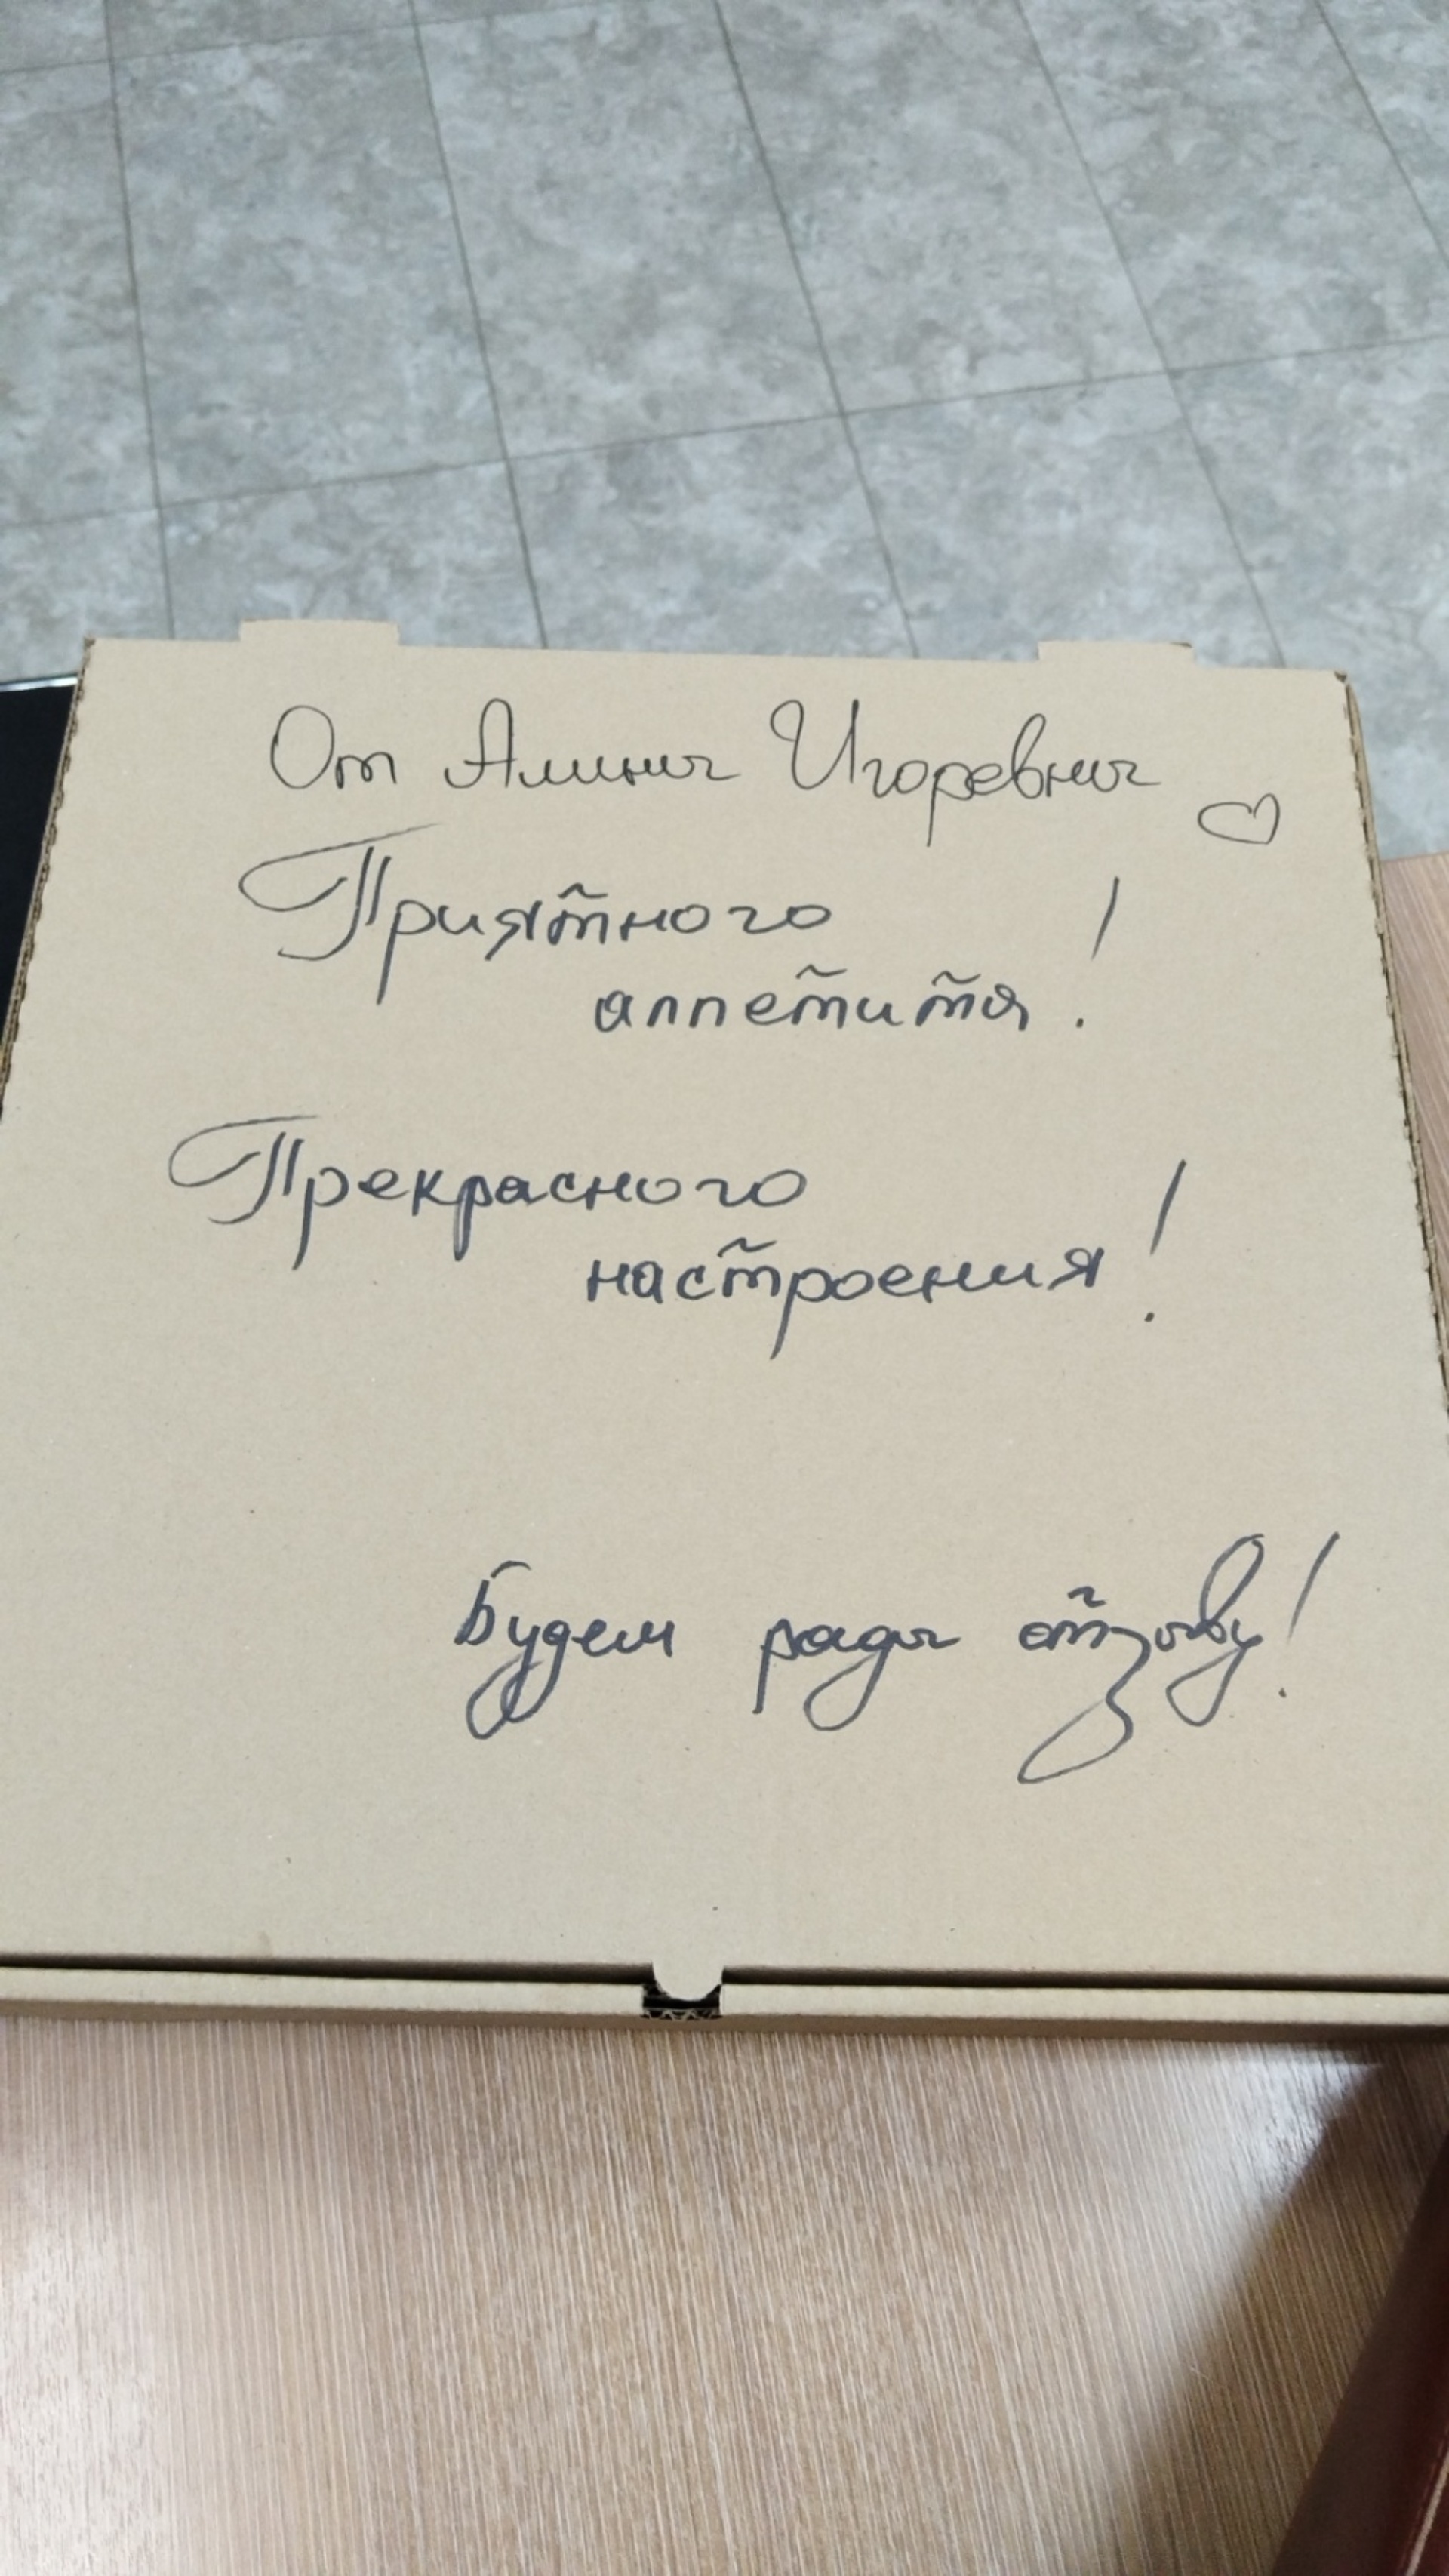 От Алины Игоревны
Приятного
аппетита!
Прекрасного
настроения!
Будем рады отзыву!